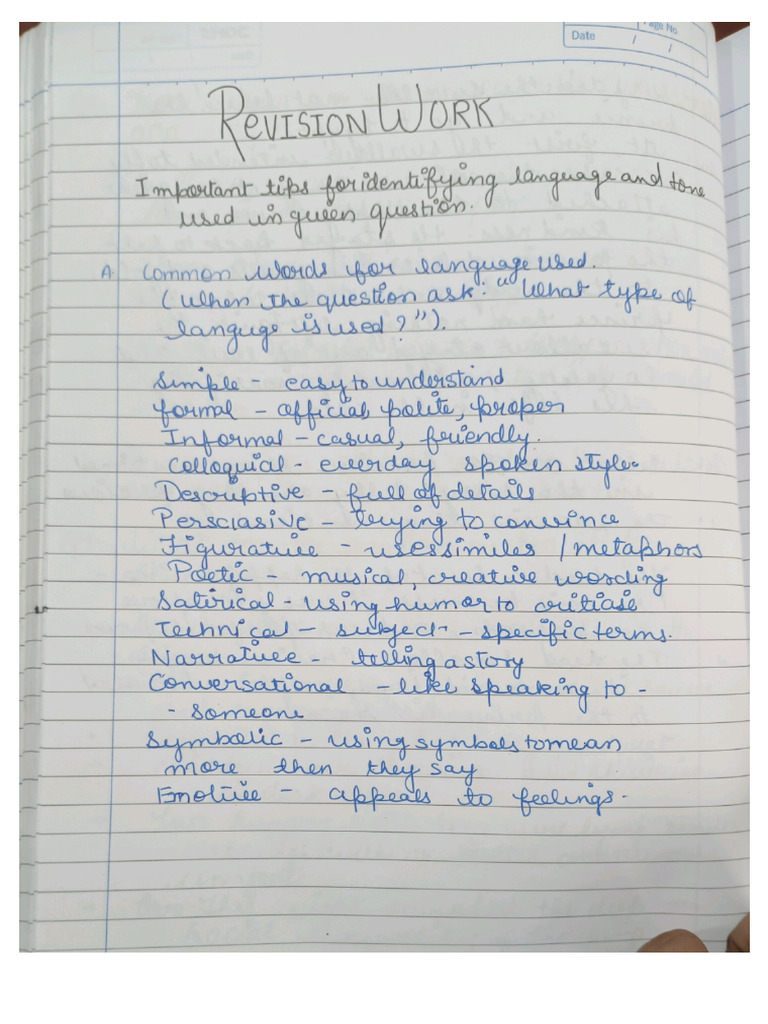 Page No
Date / /
REVISION WORK
Important tips for identifying language and tone
used in queen question.
A Common words for language used.
(When the question ask: "What type of
languge is used?").
Simple - easy to understand
formal - official polite, proper
Informal - casual, friendly.
Colloquial - everday spoken style.
Descriptive - full of details
Persciasive - trying to convince
Figurative - uses similes / metaphors
Poetic - musical, creative wording
Satirical - using humor to criticise
Technical - subject - specific terms.
Narrative - telling a story
Conversational - like speaking to -
- someone
Symbolic - using symbols to mean
more then they say
Emotive - appeals to feelings.